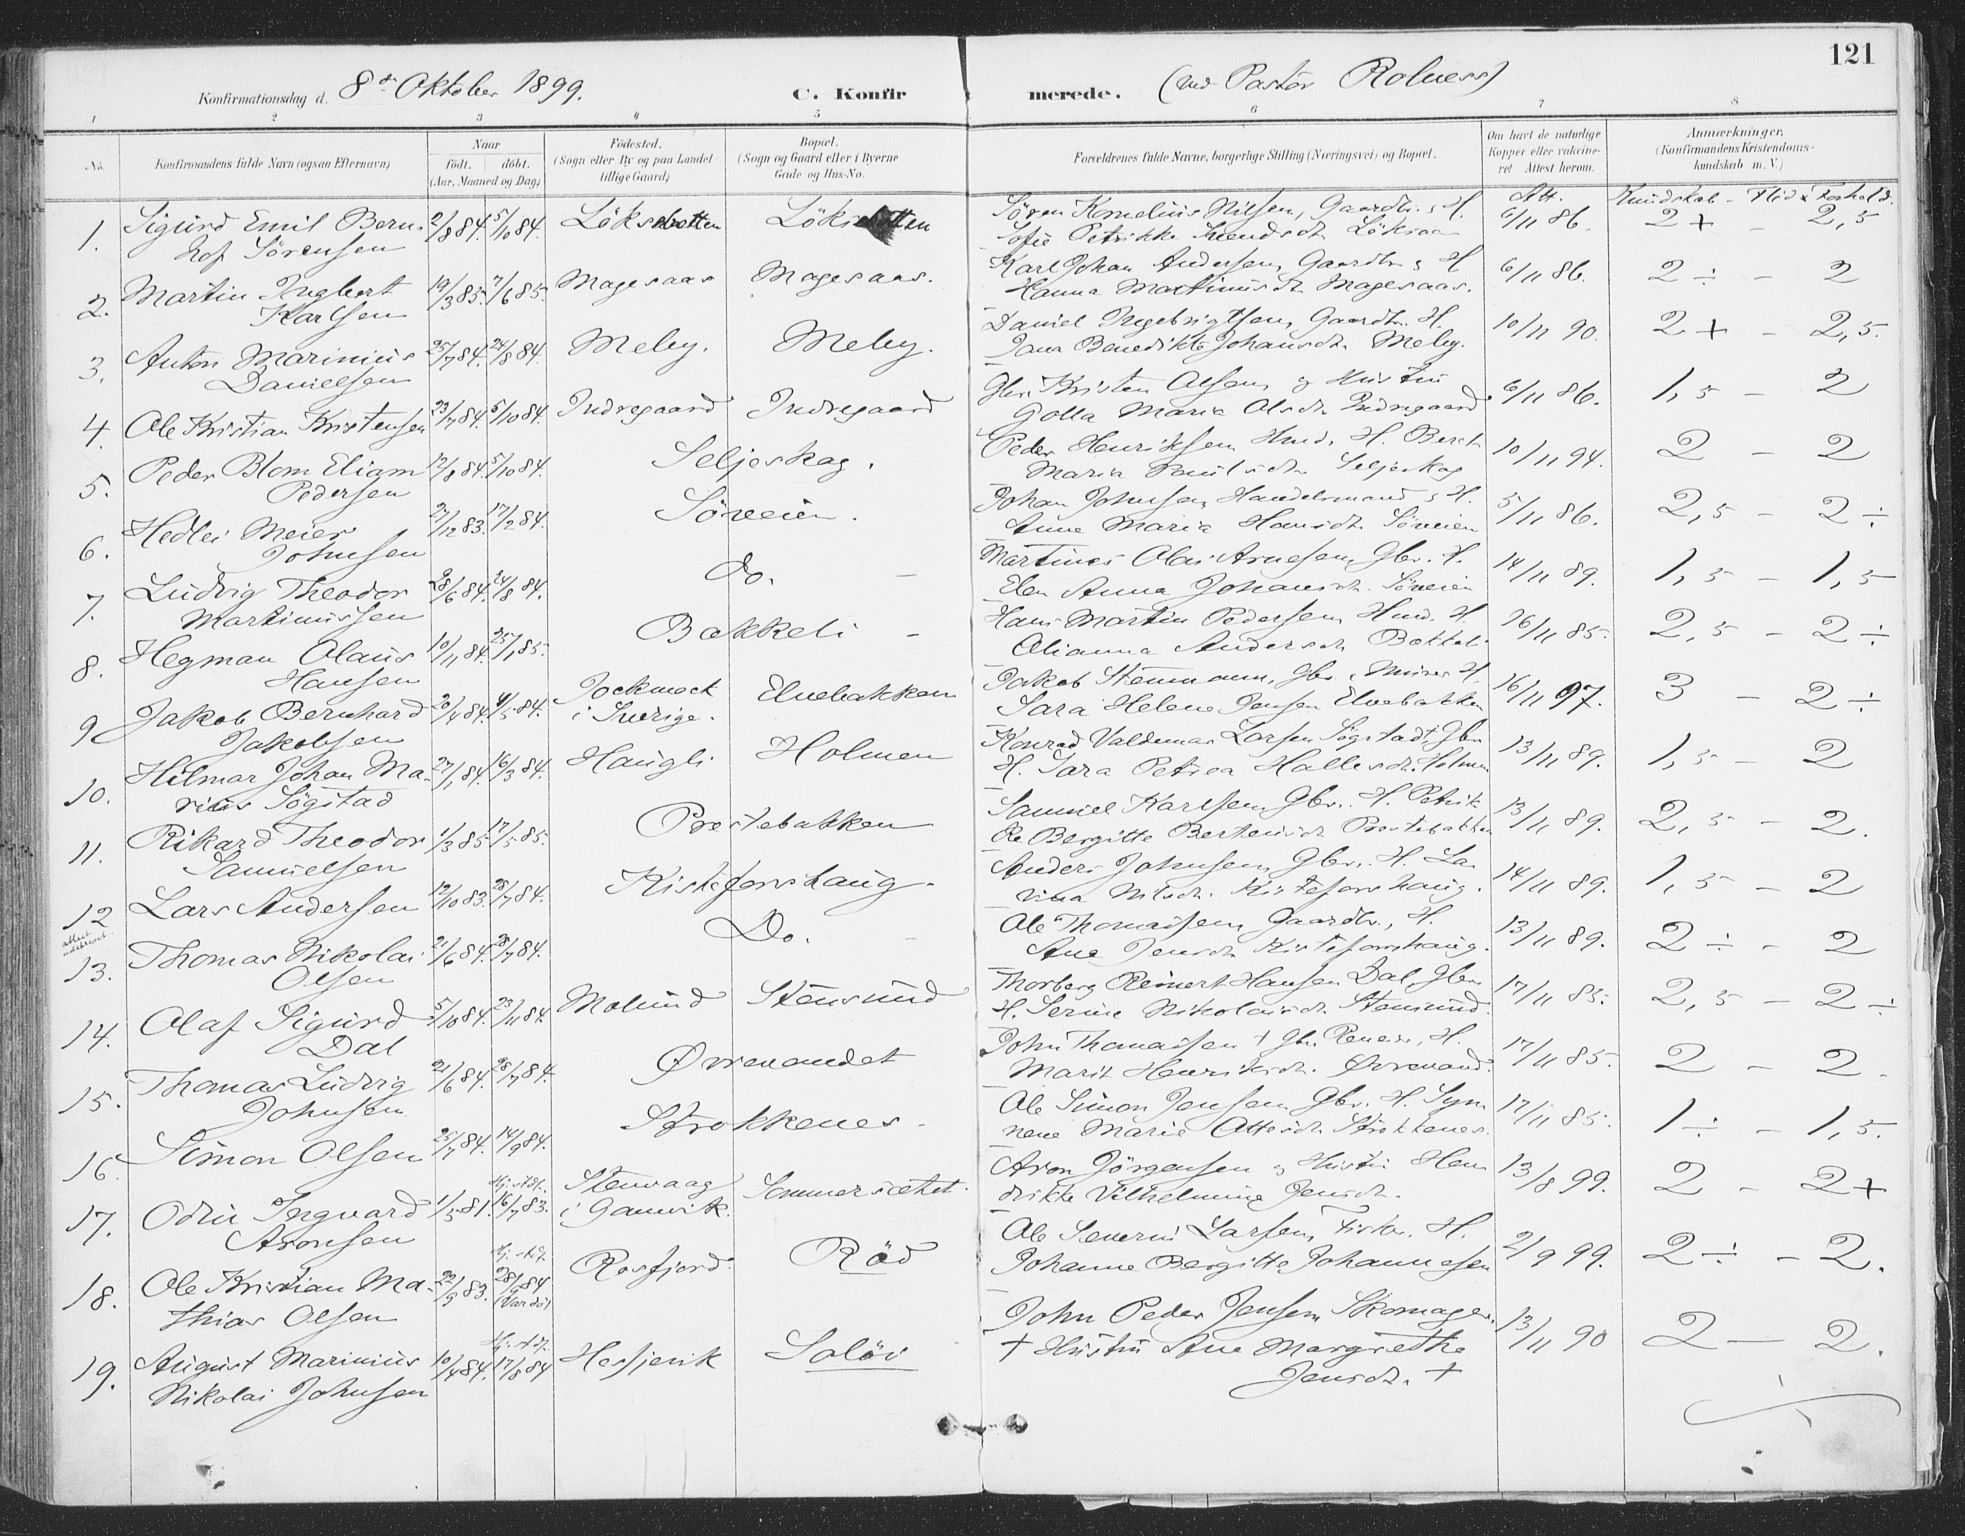 121
Konfirmationsdag d. 8de Oktober 1899. C. Konfirmerede. (ved Pastor Rolness)
1 2 3 4 5 6 7 8
No. Konfirmandens fulde Navn (ogsaa Efternavn) Naar født. døbt. (Aar, Maaned og Dag) Fødested. (Sogn eller By og paa Landet tillige Gaard) Bopæl. (Sogn og Gaard eller i Byerne Gade og Hus-No. Forældrenes fulde Navne, borgerlige Stilling (Næringsvei) og Bopæl. Om havt de naturlige Kopper eller vaccineret Attest herom. Anmærkninger, (Konfirmandens Kristendomskundskab m. V.)
Att. Kundskab - Flid & Forhold.
1. Sigurd Emil Bern- 2/8 84. 5/10 84. Söron Kornelius Nilsen, Gaardbr. & H. 6/11 86. 2+ - 2,5
hof Sörensen Sofie Petrikke
2. Martin Ingbert 19/3 85. 7/6 85. Magesaas Magesaas. Karl Johan Andersen, Gaardbr. & H 6/11 86. 2÷ - 2
Karlsen Hanna Martinusdt. Magesaas.
3. Anton Marinius 25/7 84. 24/8 84. Meby. Meby. Daniel Ingebrigtsen, Gaardbr. H. 10/11 90. 2+ - 2,5.
Danielsen Jana Benedikte Johansdt. Meby.
4. Ole Kristian Kristensen 23/7 84. 5/10 84. Indregaard Indregaard Gbr. Kristen Olsen & Hustru 6/11 86. 1,5 - 2
Golla Maria Olsdt. Indregaard
5. Peder Blom Eliam 12/8 84. 5/10 84. Seljeskog. Peder Henriksen Hmd. H. 10/11 94. 2 - 2
Pedersen Maria Seljeskog
6. Hedlei Meier 27/12 83. 17/2 84. Söveien. Johan Johnsen, Handelsmand & H. 5/11 86. 2,5 - 2÷
Johnsen Anne Maria Hansdt. Söveien
7. Ludvig Theodor 28/6 84. 24/8 84. do. - Martines Olai Arnesen, Gbr. H. 14/11 89. 1,5 - 1,5
Martinussen Elen Anna Johansdt. Söveien
8. Hegman Olaus 10/11 84. 25/1 85. Bakkeli - Hans Martin Pedersen, Hmd. H. 26/11 85. 2,5 - 2÷
Hansen Olianna Andersdt. Bakkeli
9 Jakob Bernhard 20/4 84. 4/5 84. Jockmock Elvebakken Jakob Stenmann, Gbr. & Murer H. 16/11 97. 3 - 2÷
Jakobsen i Sverige. Sara Helene Jensen Elvebakken
10. Hilmar Johan Ma- 27/1 84. 16/3 84. Haugli Holmen Konrad Valdemar Larsen Sögstad, Gbr 13/11 89. 1,5 - 2
rius Sögstad H. Sara Petrea Hallesdt. Holmen
11. Rikard Theodor 1/3 85. 17/5 85. Prestebakken Samuel Karlsen, Gbr. H. Petrik 13/11 89. 2,5 - 2.
Samuelsen ke Bergitte Bertheusdt. Prestebakken
12 Lars Andersen 12/10 83. 28/7 84. Kistefonshaug. Anders Johnsen, Gbr. H. La 14/11 89. 1,5 - 2
vina Nilsdt. Kistefonshaug.
13. Thomas Nikolai 21/6 84. 28/7 84. Do. - Ole Thomassen, Gaardbr., H. 13/11 89. 2÷ - 2
Olsen Ane Jensdt. Kistefonshaug.
14. Olaf Sigurd 5/10 84. 23/11 84. Molund Stensund Thorberg Reinert Hansen Dal, Gbr. 17/11 85. 2,5 - 2÷
Dal H. Serine Nikolaisdt. Stensund.
15. Thomas Ludvig 21/6 84. 28/7 84. Övrevandet John Thomassen + Gbr. H. 17/11 85. 2 - 2.
Johnsen Marit Henriksdt. Övrevand.
16. Simon Olsen 25/7 84. 14/9 84. Strokkenes. Ole Simon Jensen, Gbr. H. Syn 17/11 85. 1÷ - 1,5.
neve Marie Ottesdt. Strokkenes.
17. Odin Ingvard 1/5 81. Hj. døbt. 16/7 83. Stenvaag Sommersætet. Aron Jörgensen & Hustru Hen 13/8 99. 2 - 2+
Aronsen i Gamvik. drikke Vilhelmine Jensdt.
18. Ole Kristian Ma- 22/9 83. Hj. døbt. 28/9 84 (Vardö) Rosfjord. Röd Ole Severin Larsen, Fisker. H. 2/9 99. 2÷ - 2.
thias Olsen Johanne Bergitte Johannesen
19. August Marinius 10/4 84. Hj. døbt. 17/8 84 Hesfjevik Salöi John Peder Jensen, Skomager 13/11 90 2 - 2.
Nikolai Johnsen + Hustru Ane Margrethe
Jensdt. +